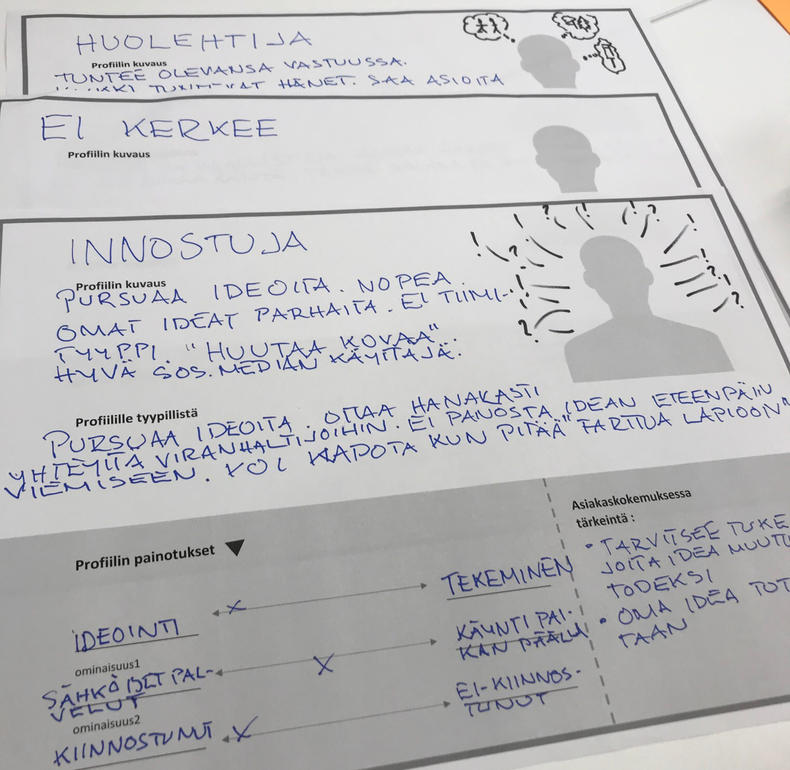 HUOLEHTIJA
Profiilin kuvaus
TUNTEE OLEVANSA VASTUUSSA.
HÄNET. SAA ASIOITA
EI KERKEE
Profiilin kuvaus
INNOSTUJA
Profiilin kuvaus
PURSUAA IDEOITA. NOPEA.
OMAT IDEAT PARHAITA. EI TIIMI-
TYYPPI. "HUUTAA KOVAA".
HYVÄ SOS.MEDIAN KÄYTTÄJÄ.
! ? ! ! ? ! ? ! ? ! ? ! ?
Profiilille tyypillistä
PURSUAA IDEOITA. OTTAA HANAKASTI
YHTEYTTÄ VIRANHALTIJOIHIN. EI PANOSTA IDEAN ETEENPÄIN
VIEMISEEN. VOI KADOTA KUN PITÄÄ "TARTTUA LAPIOON"
Profiilin painotukset
IDEOINTI
TEKEMINEN
ominaisuus1
SÄHKÖISET PAL-
VELUT
KÄYNTI PAI-
KAN PÄÄLLÄ
ominaisuus2
KIINNOSTUNUT
EI-KIINNOS-
TUNUT
Asiakaskokemuksessa
tärkeintä :
• TARVITSEE TUKE
JOITA IDEA MUUTT
TODEKSI
• OMA IDEA TOT
TAAN